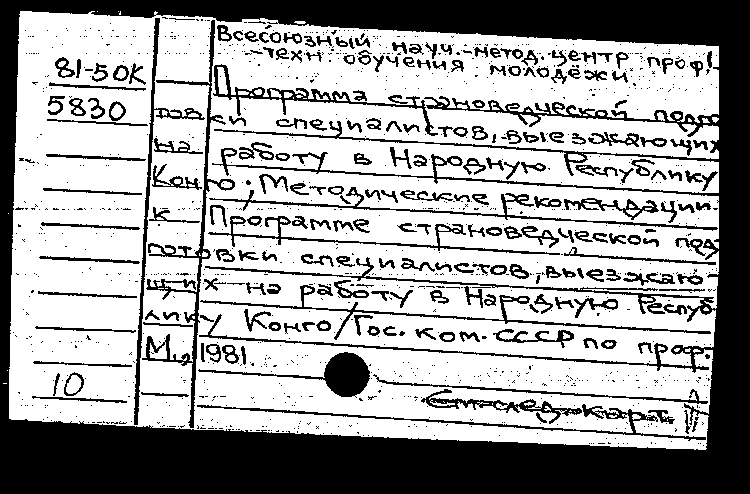 Всесоюзный науч.-метод. центр проф.-
-техн. обучения молодежи.
81-50К
Программа страноведческой подго-
5830
товки специалистов, выезжающих
на работу в Народную Республику
Конго; Методические рекомендации
к Программе страноведческой под-
готовки специалистов, выезжаю-
щих на работу в Народную Респуб-
лику Конго/Гос. ком. СССР по проф.-
М., 1981.
10
См. след. карт.